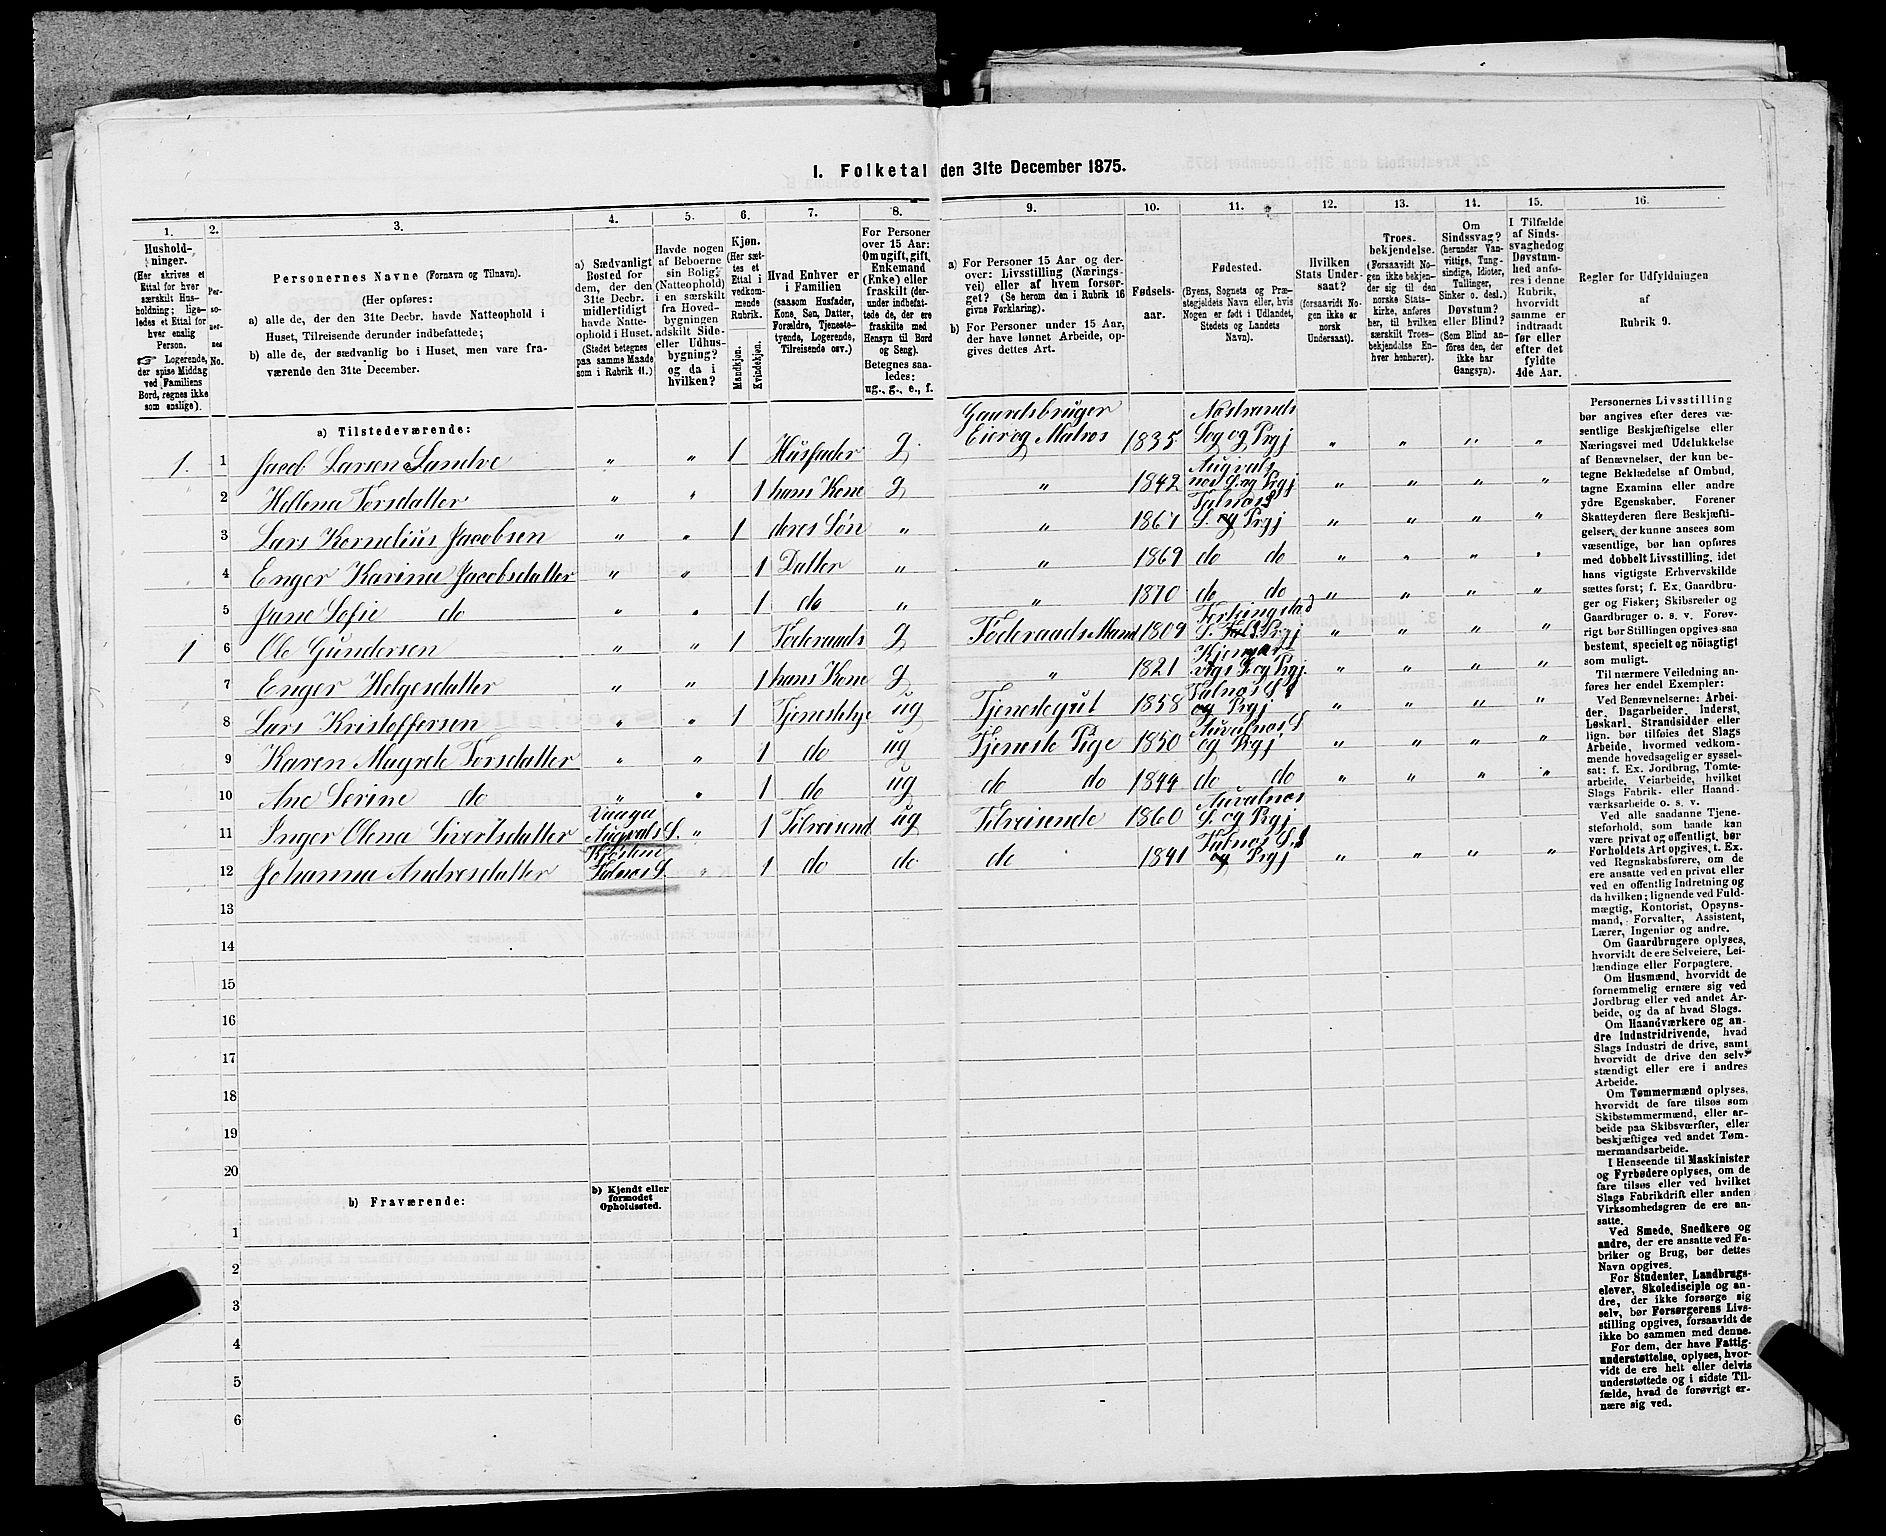 1. Folketal den 31te December 1875.
1. 2. 3. 4. 5. 6. 7. 8. 9. 10. 11. 12. 13. 14. 15. 16.
Hushold-
ninger.
(Her skrives et
Ettal for hver
særskilt Hus-
holdning; lige-
ledes et Ettal for
hver enslig
Person.
☞ Logerende,
der spise Middag
ved Familiens
Bord, regnes ikke
som enslige).
Per-
so-
ner-
nes
No.
Personernes Navne (Fornavn og Tilnavn).
(Her opføres:
a) alle de, der den 31te Decbr. havde Natteophold i
Huset, Tilreisende derunder indbefattede;
b) alle de, der sædvanlig bo i Huset, men vare fra-
værende den 31te December.
a) Sædvanligt
Bosted for
dem, der den
31te Decbr.
midlertidigt
havde Natte-
ophold i Huset.
(Stedet betegnes
paa samme Maade
som i Rubrik 11.)
Havde nogen
af Beboerne
sin Bolig
(Natteophold)
i en særskilt
fra Hoved-
bygningen
adskilt Side-
eller Udhus-
bygning?
og da i
hvilken?
Kjøn.
(Her sæt-
tes et
Ettal i
vedkom-
mende
Rubrik.
Mandkjøn.
Kvindekjøn.
Hvad Enhver er
i Familien
(saasom Husfader,
Kone, Søn, Datter,
Forældre, Tjeneste-
tyende, Logerende,
Tilreisende osv.)
For Personer
over 15 Aar:
Om ugift, gift,
Enkemand
(Enke) eller
fraskilt (der-
under indbefat-
tede de, der ere
fraskilte med
Hensyn til Bord
og Seng).
Betegnes saa-
ledes:
ug., g., e., f.
a) For Personer 15 Aar og der-
over: Livsstilling (Nærings-
vei) eller af hvem forsør-
get? (Se herom den i Rubrik 16
givne Forklaring).
b) For Personer under 15 Aar,
der have lønnet Arbeide, op-
gives dettes Art.
Fødsels-
aar.
Fødested.
(Byens, Sognets og Præ-
stegjeldets Navn eller, hvis
Nogen er født i Udlandet,
Stedets og Landets
Navn).
Hvilken
Stats Under-
saat?
(forsaavidt No-
gen ikke er
norsk
Undersaat).
Troes-
bekjendelse.
(Forsaavidt No-
gen ikke bekjen-
der sig til den
norske Stats-
kirke, anføres
her, til hvilken
særskilt Troes-
bekjendelse En-
hver henhører).
Om
Sindssvag?
(herunder Van-
vittige, Tung-
sindige, Idioter,
Tullinger,
Sinker o. desl.)
Døvstum?
eller Blind?
(Som Blind an-
føres den, der
ikke har
Gangsyn).
I Tilfælde
af Sinds-
svaghed og
Døvstum-
hed anfø-
res i denne
Rubrik,
hvorvidt
samme er
indtraadt
før eller
efter det
fyldte
4de Aar.
Regler for Udfyldningen
af
Rubrik 9.
a) Tilstedeværende:
1. 1 Jacob Larsen Sandve " " 1 Husfader g Gaardsbruger Eier og Matros 1835 Nostrands Sog og Prgj " " " "
2 Hellena Torsdatter " " 1 hans Kone g " 1842 Augvals nos S. og Prgj " " " "
3 Lars Kornelius Jacobsen " " 1 deres Søn " " 1867 Falnos S. og Prgj " " " "
4 Enger Karina Jacobsdatter " " 1 Datter " " 1869 do do " " " "
5 Jane Sofie do " " 1 do " " 1870 do do " " " "
1 6 Ole Gundersen " " 1 Føderaads g Føderaads Mand 1809 S. Prgj " " " "
7 Enger Helgesdatter " " 1 hans Kone g " 1821 S. og Prgj. " " " "
8 Lars Kristoffersen " " 1 Tjenestetye ug Tjenestegut 1858 Falnos S. og Prgj " " " "
9 Karen Magrete Torsdatter " " 1 do ug Tjeneste Pige 1850 Auvalnos S og Prgj " " " "
10 Ane Serine do " " 1 do ug do do 1844 do do " " " "
11 Inger Olena Sivertsdatter Vaaga Augvals S. " 1 Tilreisend ug Tilreisende 1860 Auvalnos S. og Prgj
12 Johanna Andresdatter Falnos S. " 1 do do do 1841 Falnos S. og Prgj " " " "
13
14
15
16
17
18
19
20
b) Fraværende:
b) Kjendt eller
formodet
Opholdssted.
1
2
3
4
5
6
Personernes Livsstilling
bør angives efter deres væ-
sentlige Beskjæftigelse eller
Næringsvei med Udelukkelse
af Benævnelser, der kun be-
tegne Beklædelse af Ombud,
tagne Examina eller andre
ydre Egenskaber. Forener
Skatteyderen flere Beskjæfti-
gelser, der kunne ansees som
væsentlige, bør han opføres
med dobbelt Livsstilling, idet
hans vigtigste Erhvervskilde
sættes først; f. Ex. Gaardbru-
ger og Fisker; Skibsreder og
Gaardbruger o. s. v. Forøv-
rigt bør Stillingen opgives saa
bestemt, specielt og nöiagtigt
som muligt.
Til nærmere Veiledning an-
føres her endel Exempler:
Ved Benævnelserne: Arbei-
der, Dagarbeider, Inderst,
Løskarl, Strandsidder eller
lign. bør tilføies det Slags
Arbeide, hvormed vedkom-
mende hovedsagelig er syssel-
sat; f. Ex. Jordbrug, Tomte-
arbeide, Veiarbeide, hvilket
Slags Fabrik- eller Haand-
værksarbeide o. s. v.
Ved alle saadanne Tjene-
steforhold, som baade kan
være privat og offentligt, bør
Forholdets Art opgives, t. Ex.
ved Regnskabsførere, om de
ere ansatte ved en privat eller
ved en offentlig Indretning og
da hvilken; lignende ved Fuld-
mægtig, Kontorist, Opsyns-
mand, Forvalter, Assistent,
Lærer, Ingeniør og andre.
Om Gaardbrugere oplyses,
hvorvidt de ere Selveiere, Lei-
lændinge eller Forpagtere.
Om Husmænd, hvorvidt de
fornemmelig ernære sig ved
Jordbrug eller ved andet Ar-
beide, og da af hvad Slags.
Om Haandværkere og an-
dre Industridrivende, hvad
Slags Industri de drive, samt
hvorvidt de drive den selv-
stændigt eller ere i andres
Arbeide.
Om Tømmermænd oplyses,
hvorvidt de fare tilsøs som
Skibstømmermænd, eller ar-
beide paa Skibsværfter, eller
beskjæftiges ved andet Tøm-
mermandsarbeide.
I Henseende til Maskinister
og Fyrbødere oplyses, om de
fare tilsøs eller ved hvilket
Slags Fabrikdrift eller anden
Virksomhedsgren de ere an-
satte.
Ved Smede, Snedkere og
andre, der ere ansatte ved Fa-
briker og Brug, bør dettes
Navn opgives.
For Studenter, Landbrugs-
elever, Skoledisciple og an-
dre, der ikke forsørge sig
selv, bør Forsørgerens Livs-
stilling opgives, forsaavidt de
ikke bo sammen med denne.
For dem, der have Fattig-
understøttelse, oplyses, hvor-
vidt de ere helt eller delvis
understøttede og i sidste Til-
fælde, hvad de forøvrigt er-
nære sig ved.